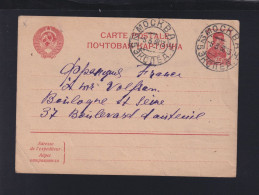 CARTE POSTALE
ПОЧТОВАЯ КАРТОЧКА
МОСКВА
МОСКВА
Франция France
Boulogne s/ Seine
37 Boulevard d'auteuil
Adresse de l'expéditeur
Адрес отправителя